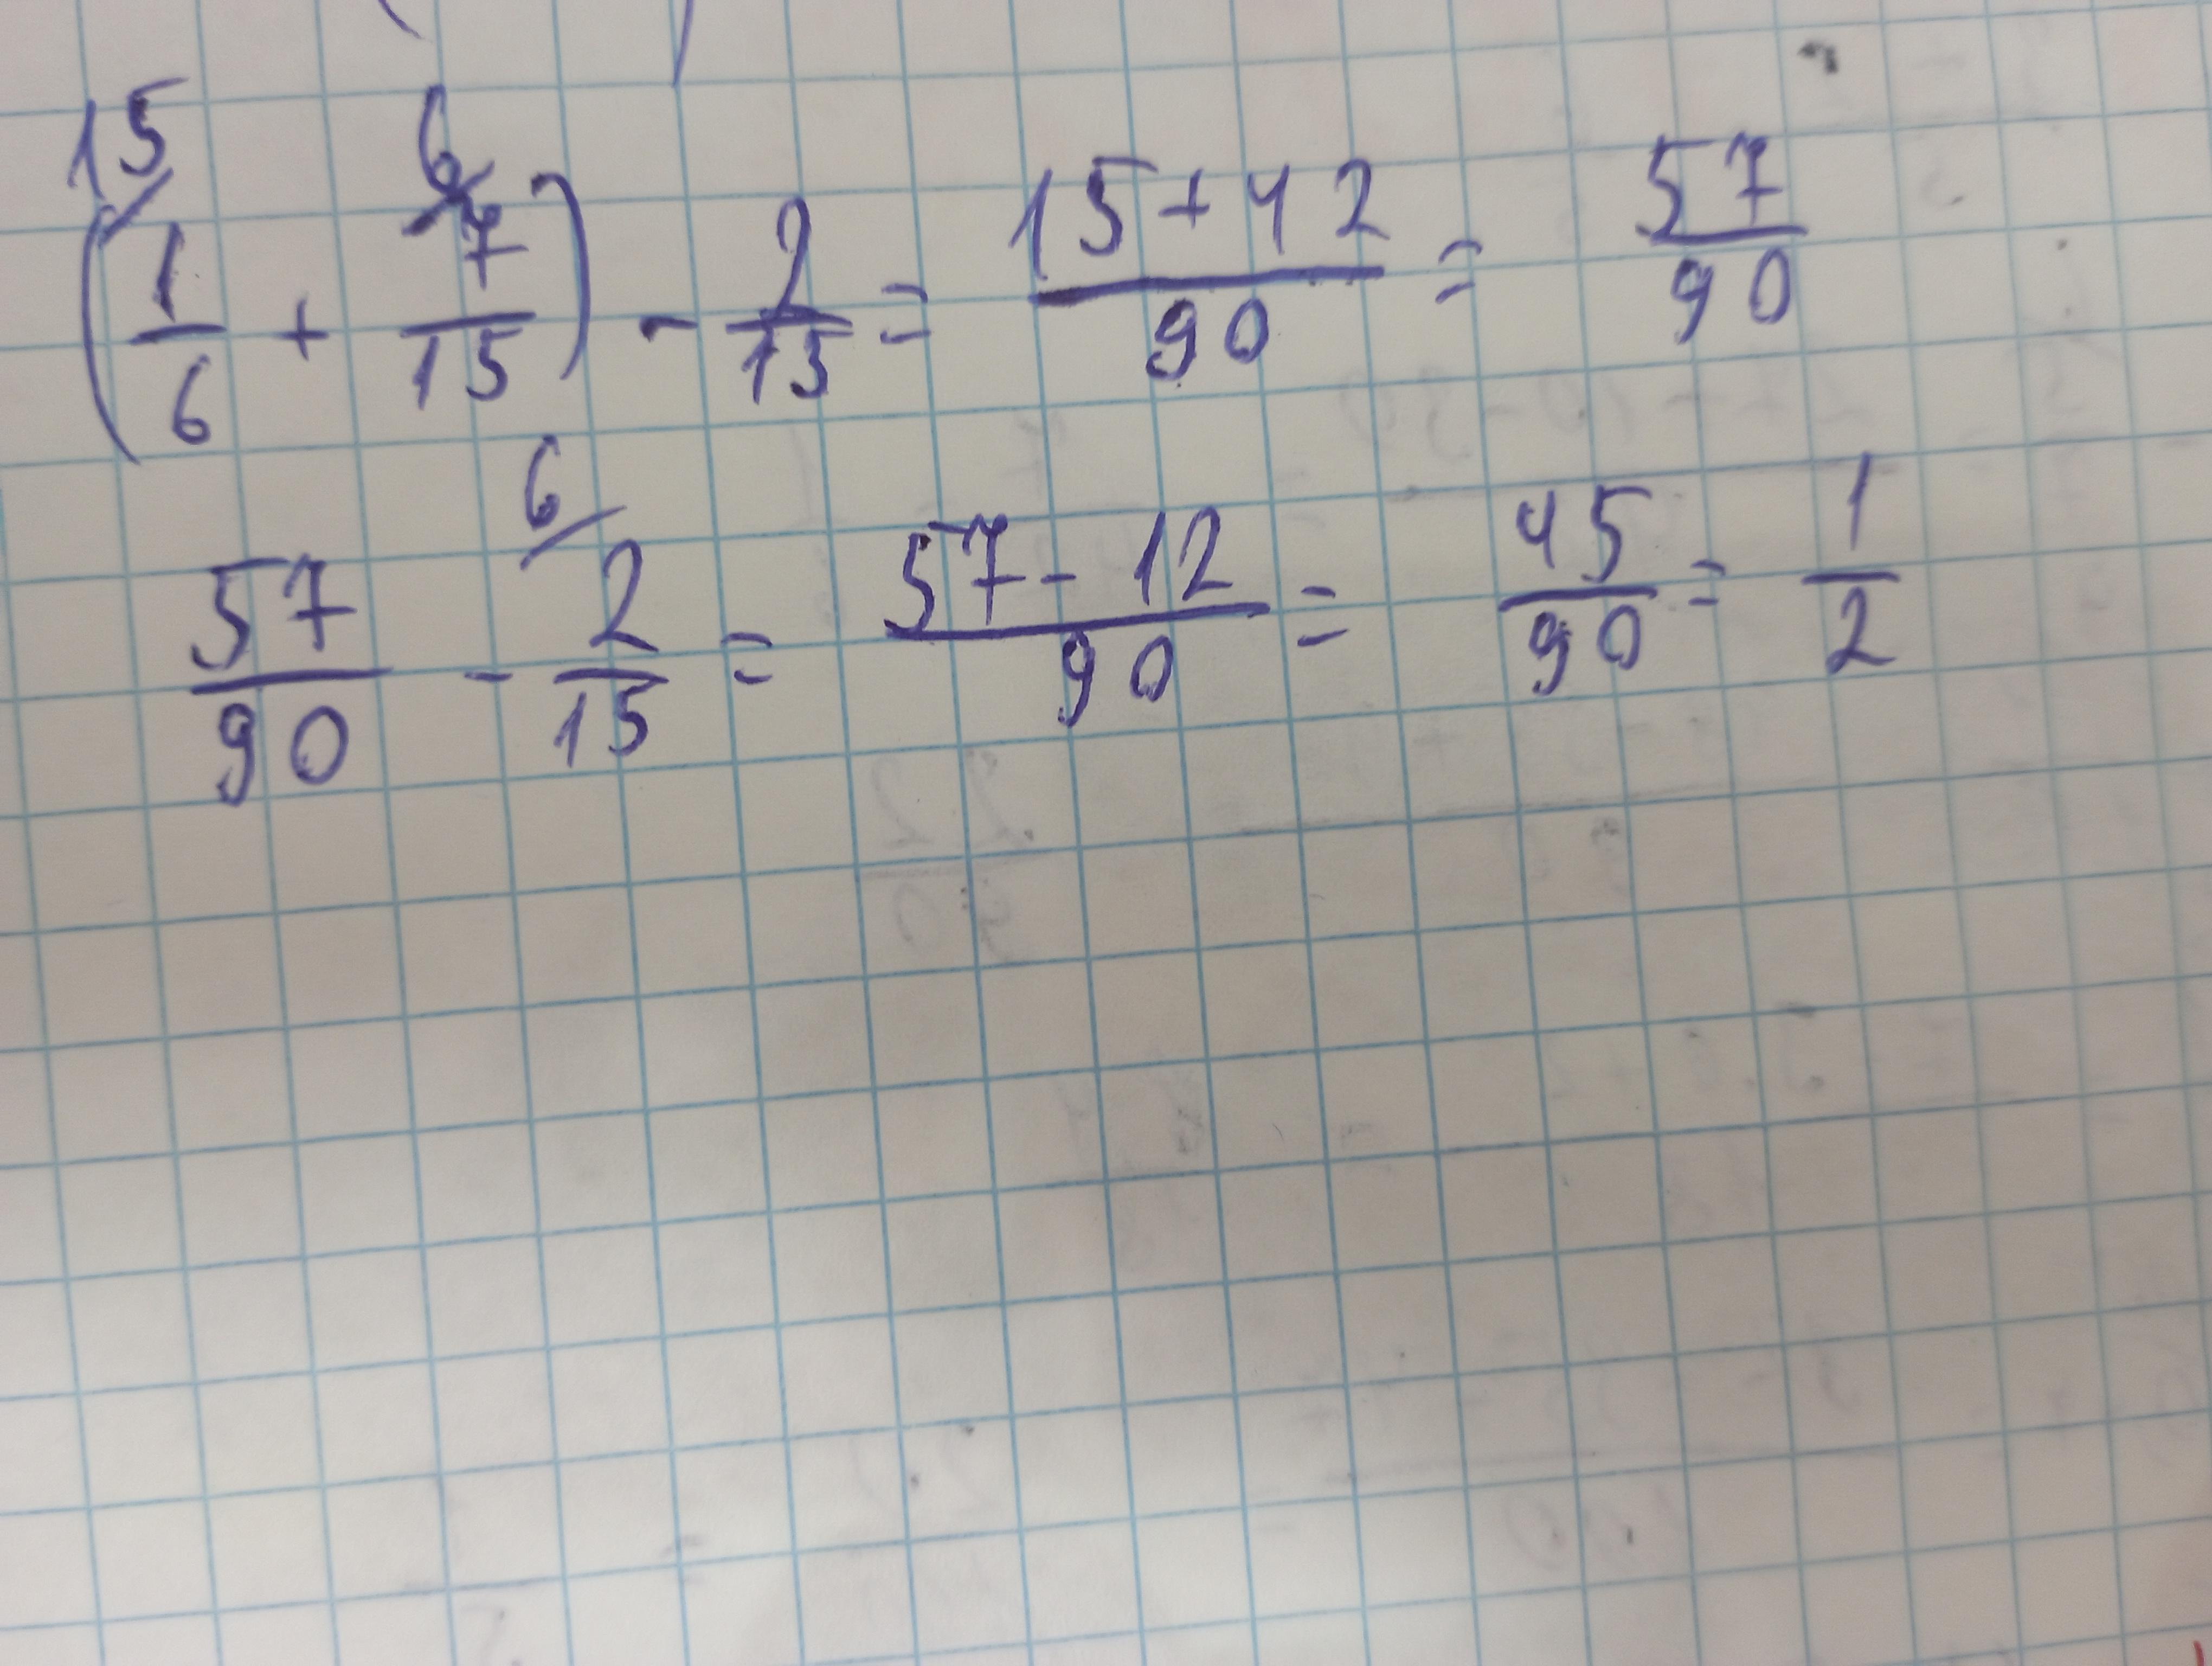 15/ 6/
(1/6 + 7/15) - 2/15 = 15+42/90 = 57/90
6/
57/90 - 2/15 = 57-12/90 = 45/90 = 1/2